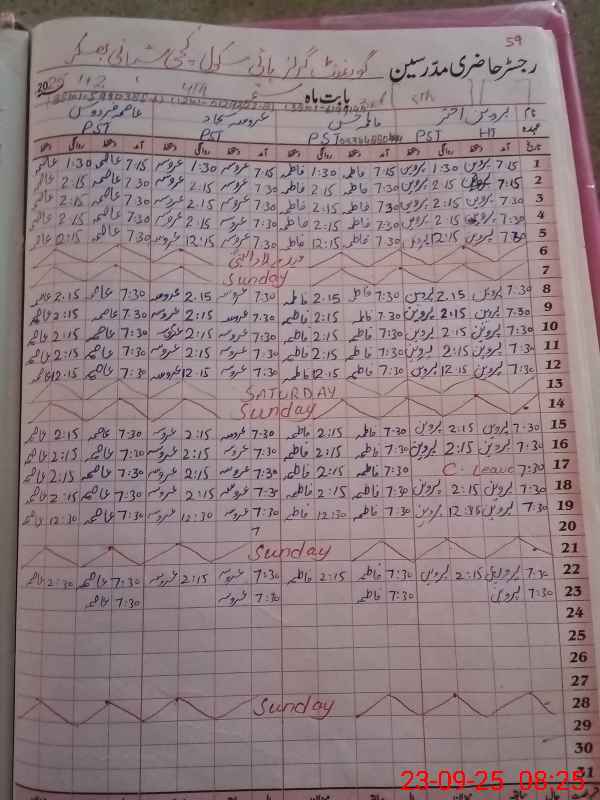 59
رجسٹر حاضری مدرسین گورنمنٹ گرلز ہائی سکول
2025 بابت ماہ
نام پروین اختر عروسہ سجاد عاصمہ فردوس
عہدہ PST PST PST PST
تاریخ آمد دستخط روانگی دستخط آمد دستخط روانگی دستخط آمد دستخط روانگی دستخط آمد دستخط روانگی دستخط
1 7:15 پروین 1:30 پروین 7:15 فاطمہ 1:30 فاطمہ 7:15 عروسہ 1:30 عروسہ 7:15 عاصمہ 1:30 عاصمہ
2 7:15 2:15 پروین 7:30 فاطمہ 2:15 فاطمہ 7:30 عروسہ 2:15 عروسہ 7:30 عاصمہ 2:15 عاصمہ
3 7:30 پروین 2:15 پروین 7:30 فاطمہ 2:15 فاطمہ 7:30 عروسہ 2:15 عروسہ 7:30 عاصمہ 2:15 عاصمہ
4 7:30 2:15 پروین 7:30 فاطمہ 2:15 فاطمہ 7:30 عروسہ 2:15 عروسہ 7:30 عاصمہ 2:15 عاصمہ
5 7:30 پروین 12:15 پروین 7:30 فاطمہ 12:15 فاطمہ 7:30 عروسہ 12:15 عروسہ 7:30 عاصمہ 12:15 عاصمہ
6
7 Sunday
8 7:30 پروین 2:15 پروین 7:30 فاطمہ 2:15 فاطمہ 7:30 عروسہ 2:15 عروسہ 7:30 عاصمہ 2:15 عاصمہ
9 7:30 پروین 2:15 پروین 7:30 فاطمہ 2:15 فاطمہ 7:30 عروسہ 2:15 عروسہ 7:30 عاصمہ 2:15 عاصمہ
10 7:30 پروین 2:15 پروین 7:30 فاطمہ 2:15 فاطمہ 7:30 عروسہ 2:15 عروسہ 7:30 عاصمہ 2:15 عاصمہ
11 7:30 پروین 2:15 پروین 7:30 فاطمہ 2:15 فاطمہ 7:30 عروسہ 2:15 عروسہ 7:30 عاصمہ 2:15 عاصمہ
12 7:30 پروین 12:15 پروین 7:30 فاطمہ 12:15 فاطمہ 7:30 عروسہ 12:15 عروسہ 7:30 عاصمہ 12:15 عاصمہ
13 SATURDAY
14 Sunday
15 7:30 پروین 2:15 پروین 7:30 فاطمہ 2:15 فاطمہ 7:30 عروسہ 2:15 عروسہ 7:30 عاصمہ 2:15 عاصمہ
16 7:30 پروین 2:15 پروین 7:30 فاطمہ 2:15 فاطمہ 7:30 عروسہ 2:15 عروسہ 7:30 عاصمہ 2:15 عاصمہ
17 7:30 C. Leave 7:30 فاطمہ 2:15 فاطمہ 7:30 عروسہ 2:15 عروسہ 7:30 عاصمہ 2:15 عاصمہ
18 7:30 پروین 2:15 پروین 7:30 فاطمہ 2:15 فاطمہ 7:30 عروسہ 2:15 عروسہ 7:30 عاصمہ 2:15 عاصمہ
19 7:30 پروین 12:30 پروین 7:30 فاطمہ 12:30 فاطمہ 7:30 عروسہ 12:30 عروسہ 7:30 عاصمہ 12:30 عاصمہ
20 7
21 Sunday
22 7:30 پروین 2:15 پروین 7:30 فاطمہ 2:15 فاطمہ 7:30 عروسہ 2:15 عروسہ 7:30 عاصمہ 2:30 عاصمہ
23 7:30 پروین 7:30 فاطمہ 7:30 عروسہ 7:30 عاصمہ
24
25
26
27
28 Sunday
29
30
31
23-09-25 08:25